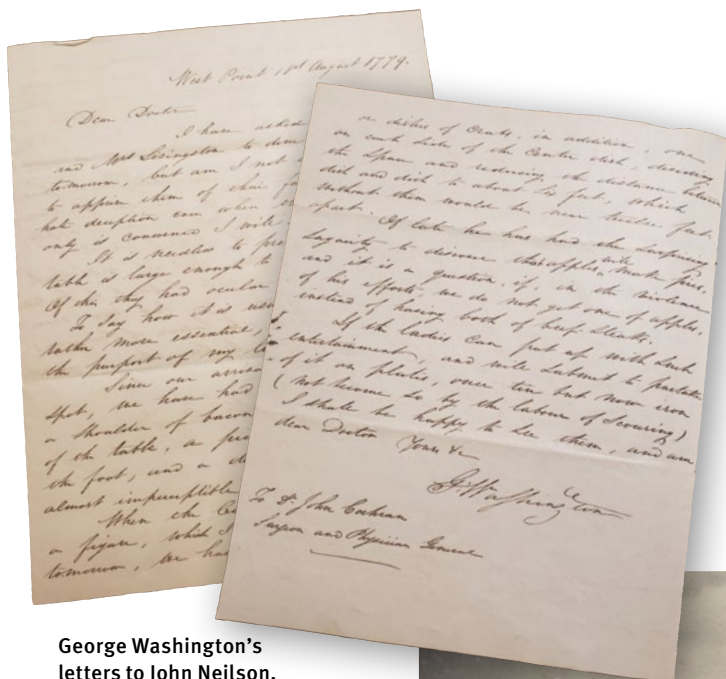 West Point, 1st August 1779.
Dear Doctor
I have asked
and Mrs Livingston to dine
tomorrow, but am I not
to apprize them of their fa
hate deception even when th
only is concerned I will
It is needless to pre
table is large enough to
Of this they had ocular
To say how it is usu
rather more essential,
the purport of my
Since our arriva
spot, we have had
a shoulder of bacon
of the table, a
the foot, and a
almost imperceptible
When the
a figure, which I
tomorrow, we ha
or dishes of Crabs, in addition, one
on each side of the center dish, dividing
the space and reducing the distance between
dish and dish to about Six feet, which
without them would be near twelve feet
apart. Of late he has had the surprizing
Sagacity to discover that apples make pies,
and it is a question, if, in the violence
of his efforts, we do not get one of apples,
instead of having both of beef Steaks.
If the ladies can put up with Such
entertainment, and will Submit to partake
of it on plates, once tin but now iron
(not become So by the labour of Scouring)
I shall be happy to see them, and am,
dear Doctor Yours &c
G. Washington
To Dr. John Cochran
Surgeon and Physician General
George Washington's
letters to John Neilson.